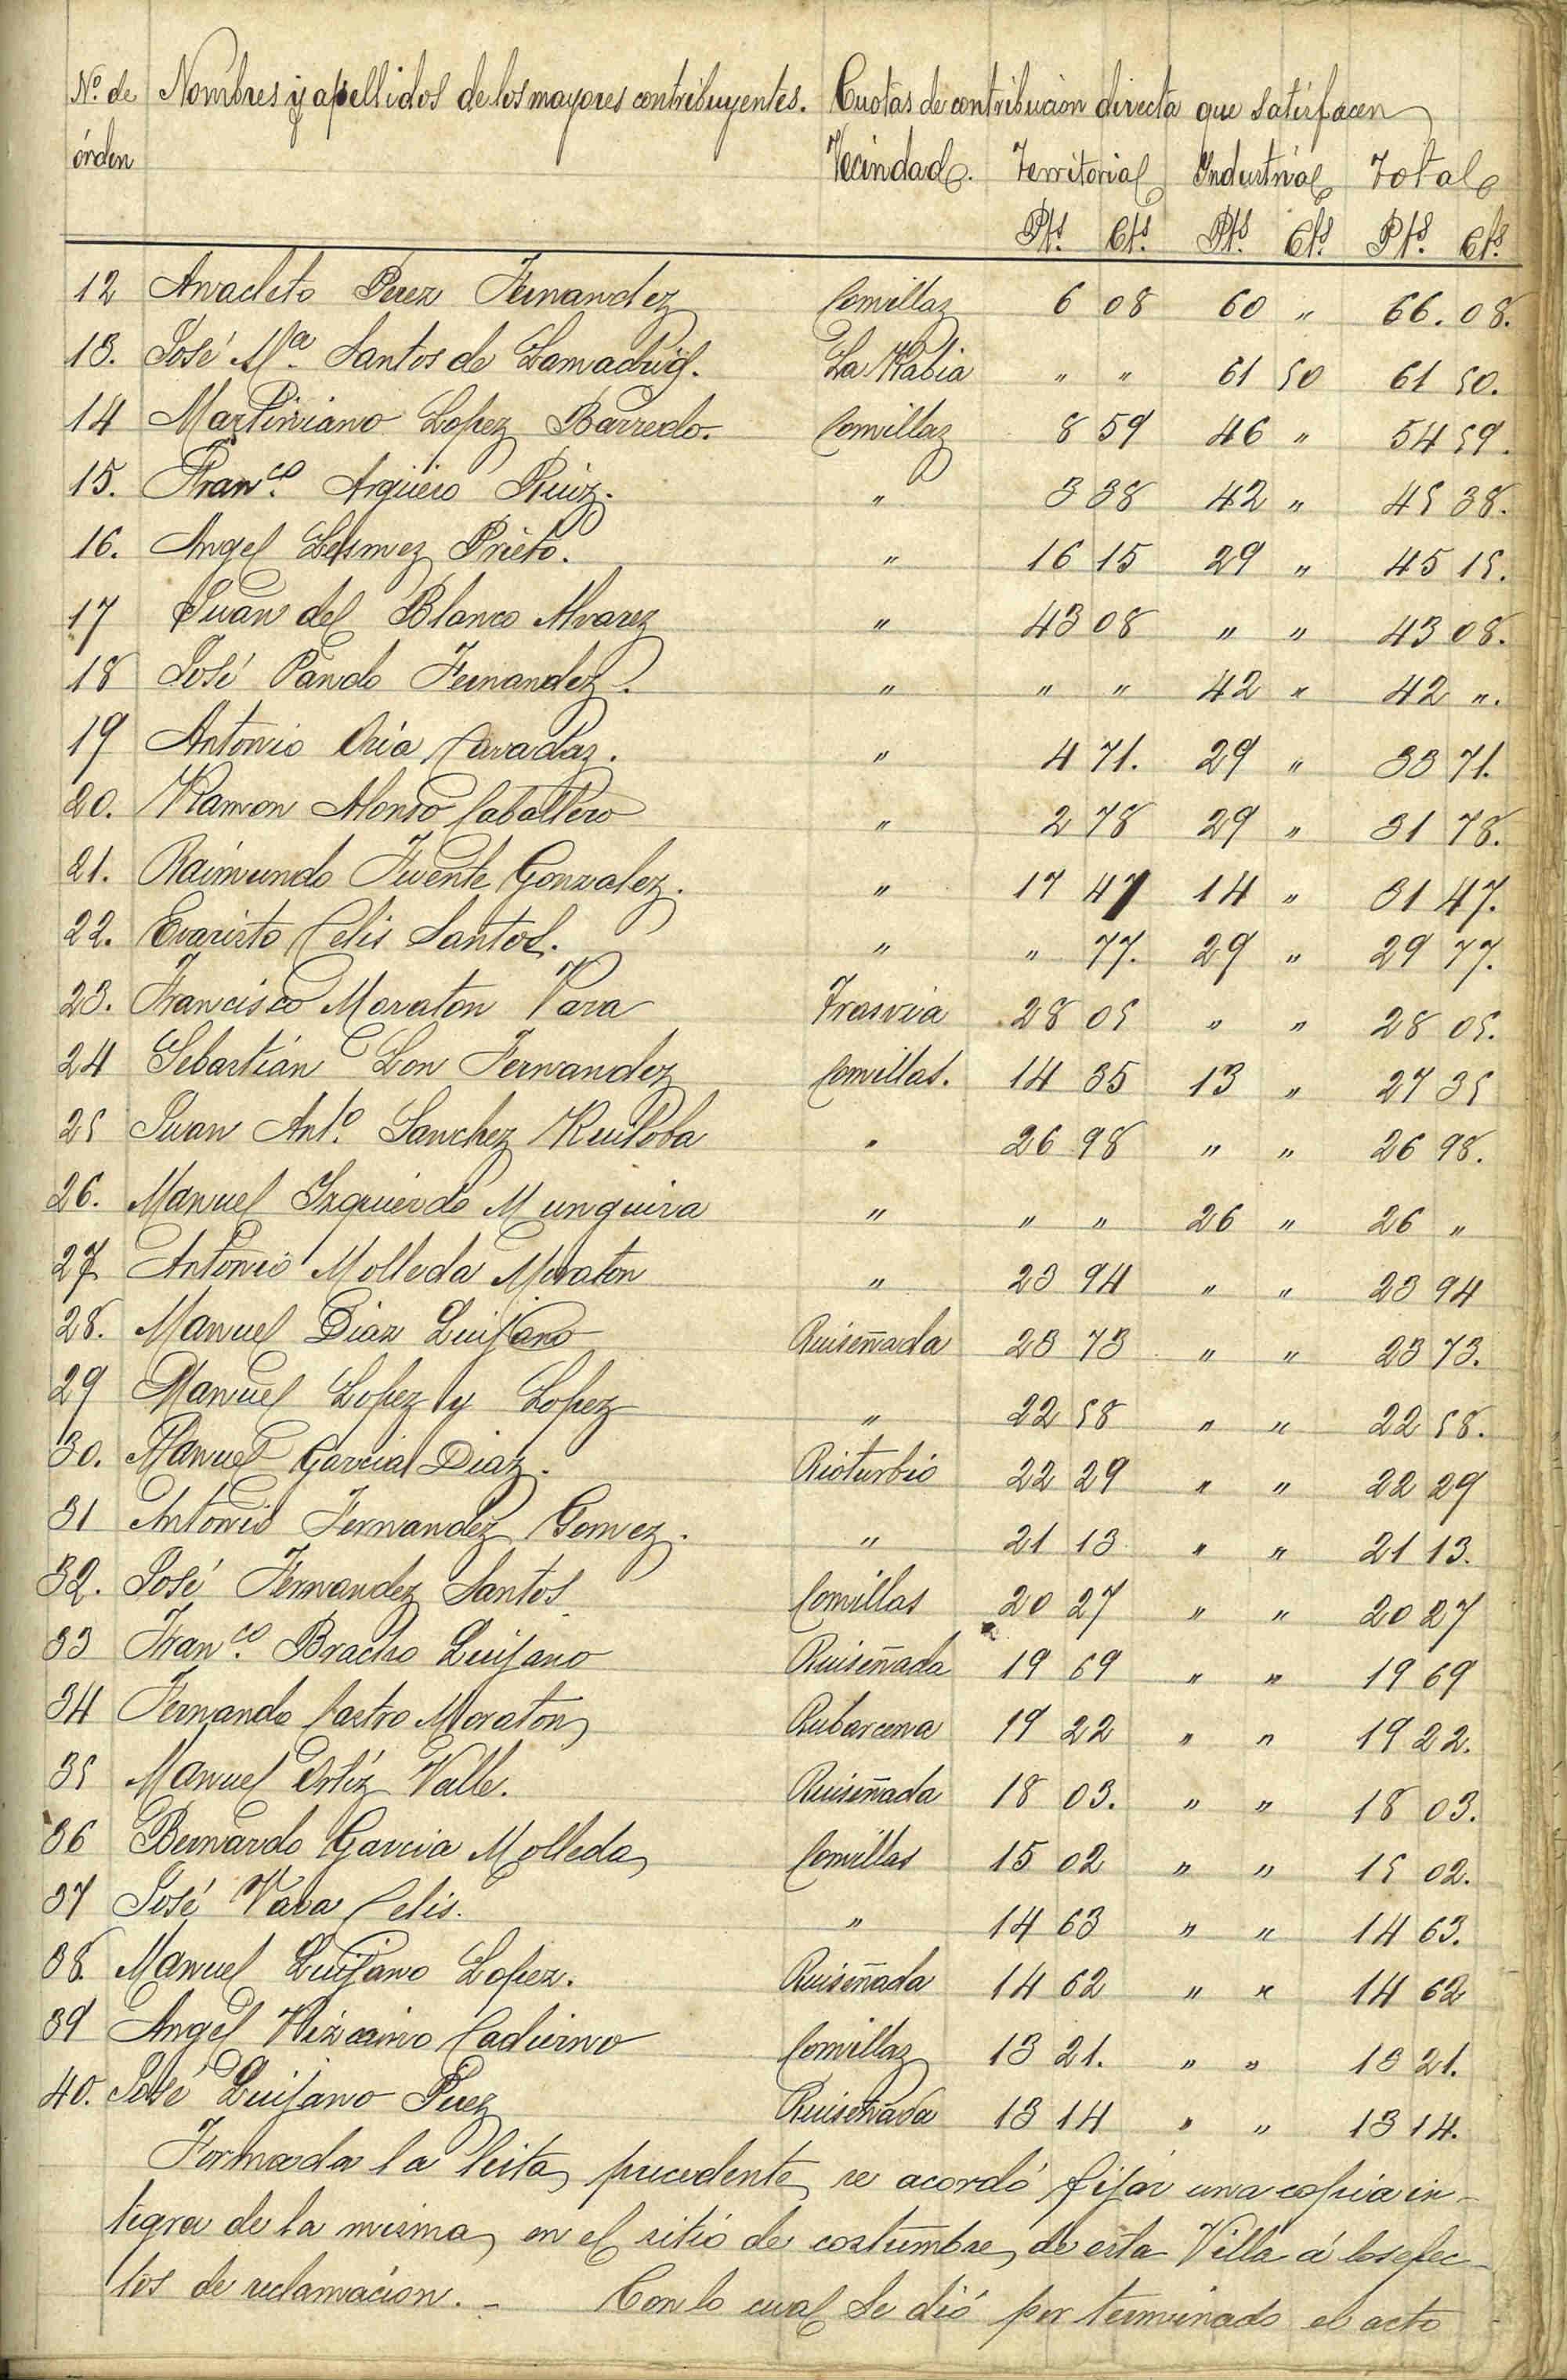 Nº. de Nombres y apellidos de los mayores contribuyentes. Cuotas de contribución directa que satisfacen
órden Vecindad. Territorial Industrial Total
Pts. Cts. Pts. Cts. Pts. Cts.
12 Anacleto Perez Fernandez Comillaz 6 08 60 " 66.08.
13. José Mª. Santos de Lamadrid. La Rabia " " 61 50 61 50.
14 Martiniano Lopez Barredo. Comillaz 8 59 46 " 54 59.
15. Franco. Argüeso Ruiz. " 3 38 42 " 45 38.
16. Angel Lesmez Prieto. " 16 15 29 " 45 15.
17 Juan del Blanco Alvarez " 43 08 " " 43 08.
18 José Pando Fernandez. " " " 42 " 42 ".
19 Antonio Oria Cavadaz. " 4 71. 29 " 33 71.
20. Ramon Alonso Caballero " 2 78 29 " 31 78.
21. Raimundo Fuente Gonzalez. " 17 47 14 " 31 47.
22. Evaristo Celis Santos. " " 77. 29 " 29 77.
23. Francisco Moraton Vara Trasvia 28 05 " " 28 05.
24 Sebastián Lon Fernandez Comillas. 14 35 13 " 27 35
25 Juan Anto. Sanchez Ruiloba " 26 98 " " 26 98.
26. Manuel Izquierdo Munguira " " " 26 " 26 "
27 Antonio Molleda Moraton " 23 94 " " 23 94
28. Manuel Diaz Quijano Ruiseñada 23 73 " " 23 73.
29 Manuel Lopez y Lopez " 22 58 " " 22 58.
30. Manuel Garcia Diaz. Rioturbio 22 29 " " 22 29
31 Antonio Fernandez Gomez. " 21 13 " " 21 13.
32. José Fernandez Santos Comillas 20 27 " " 20 27
33 Franco. Bracho Quijano Ruiseñada 19 69 " " 19 69
34 Fernando Castro Moraton Rubarcena 19 22 " " 19 22.
35 Manuel Ortíz Valle. Ruiseñada 18 03. " " 18 03.
36 Bernardo Garcia Molleda Comillas 15 02 " " 15 02.
37 José Vara Celis. " 14 63 " " 14 63.
38. Manuel Quijano Lopez. Ruiseñada 14 62 " " 14 62
39 Angel Vizcaino Cadierno Comillaz 13 21. " " 13 21.
40. José Quijano Perez Ruiseñada 13 14 " " 13 14.
Formada la lista precedente se acordó fijar una copia in-
tegra de la misma en el sitio de costumbre de esta Villa á los efec-
tos de reclamacion. - Con lo cual se dió por terminado el acto